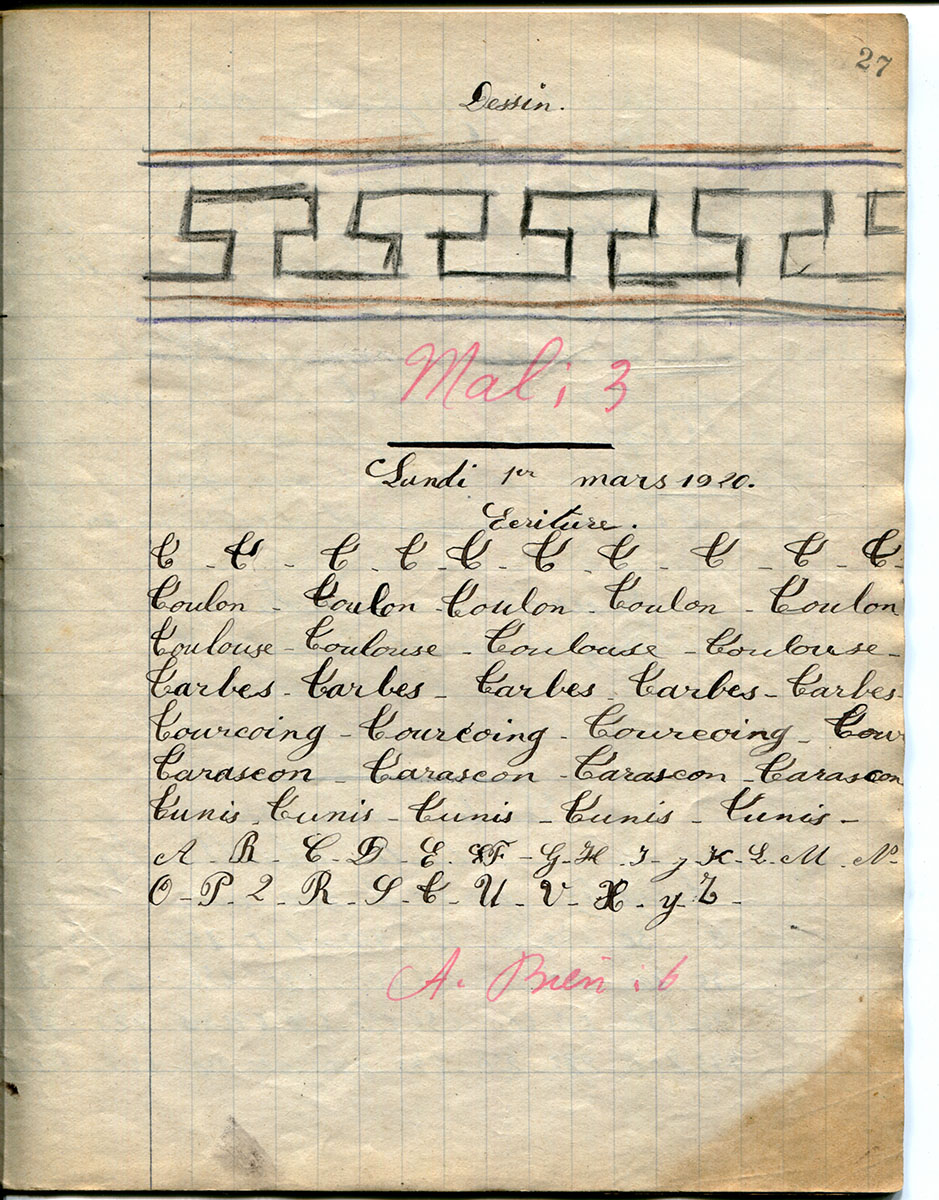 27
Dessin.
Mal ; 3
Lundi 1er mars 1920.
Ecriture.
T - T - T - T - T - T - T - T - T - T -
Toulon - Toulon - Toulon - Toulon - Toulon
Toulouse - Toulouse - Toulouse - Toulouse -
Tarbes - Tarbes - Tarbes - Tarbes - Tarbes -
Tourcoing - Tourcoing - Tourcoing - Tour
Tarascon - Tarascon - Tarascon - Tarascon
Tunis - Tunis - Tunis - Tunis - Tunis -
A - B - C - D - E - F - G - H - I - J - K - L - M - N -
O - P - Q - R - S - T - U - V - X - y - Z -
A. Bien : 6